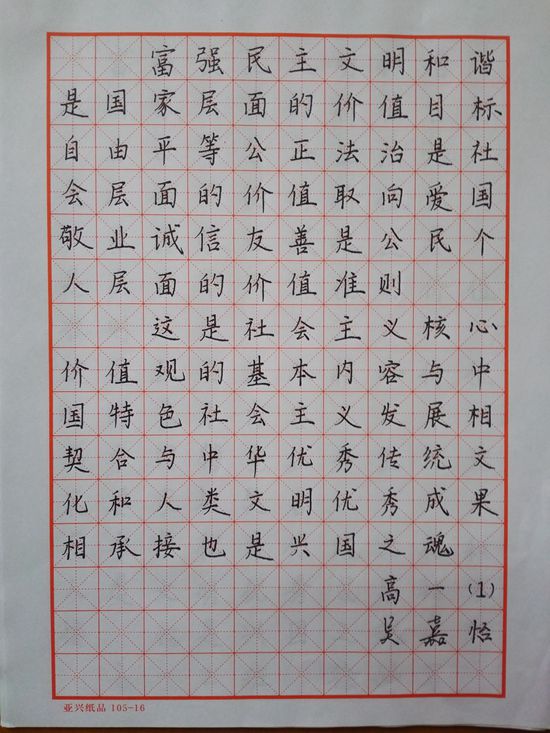 富强民主文明和谐
是国家层面的价值目标
自由平等公正法治是社
会层面的价值取向爱国
敬业诚信友善是公民个
人层面的价值准则
这是社会主义核心
价值观的基本内容与中
国特色社会主义发展相
契合与中华优秀传统文
化和人类文明优秀成果
相承接也是兴国之魂
高一(1)
吴嘉恰
亚兴纸品 105-16